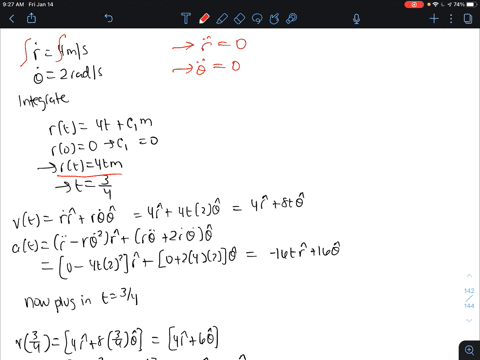 9:27 AM Fri Jan 14
74%
ṙ = 4m/s
→ r̈ = 0
θ̇ = 2 rad/s
→ θ̈ = 0
Integrate
r(t) = 4t + C₁ m
r(0) = 0 → C₁ = 0
→ r(t) = 4t m
→ t = 3/4
v(t) = ṙ r̂ + r θ̇ θ̂ = 4r̂ + 4t(2)θ̂ = 4r̂ + 8tθ̂
a(t) = (r̈ - rθ̇²)r̂ + (rθ̈ + 2ṙθ̇)θ̂
= [0 - 4t(2)²]r̂ + [0 + 2(4)(2)]θ̂ = -16t r̂ + 16θ̂
now plug in t = 3/4
v(3/4) = [4r̂ + 8(3/4)θ̂] = [4r̂ + 6θ̂]
142
/
144